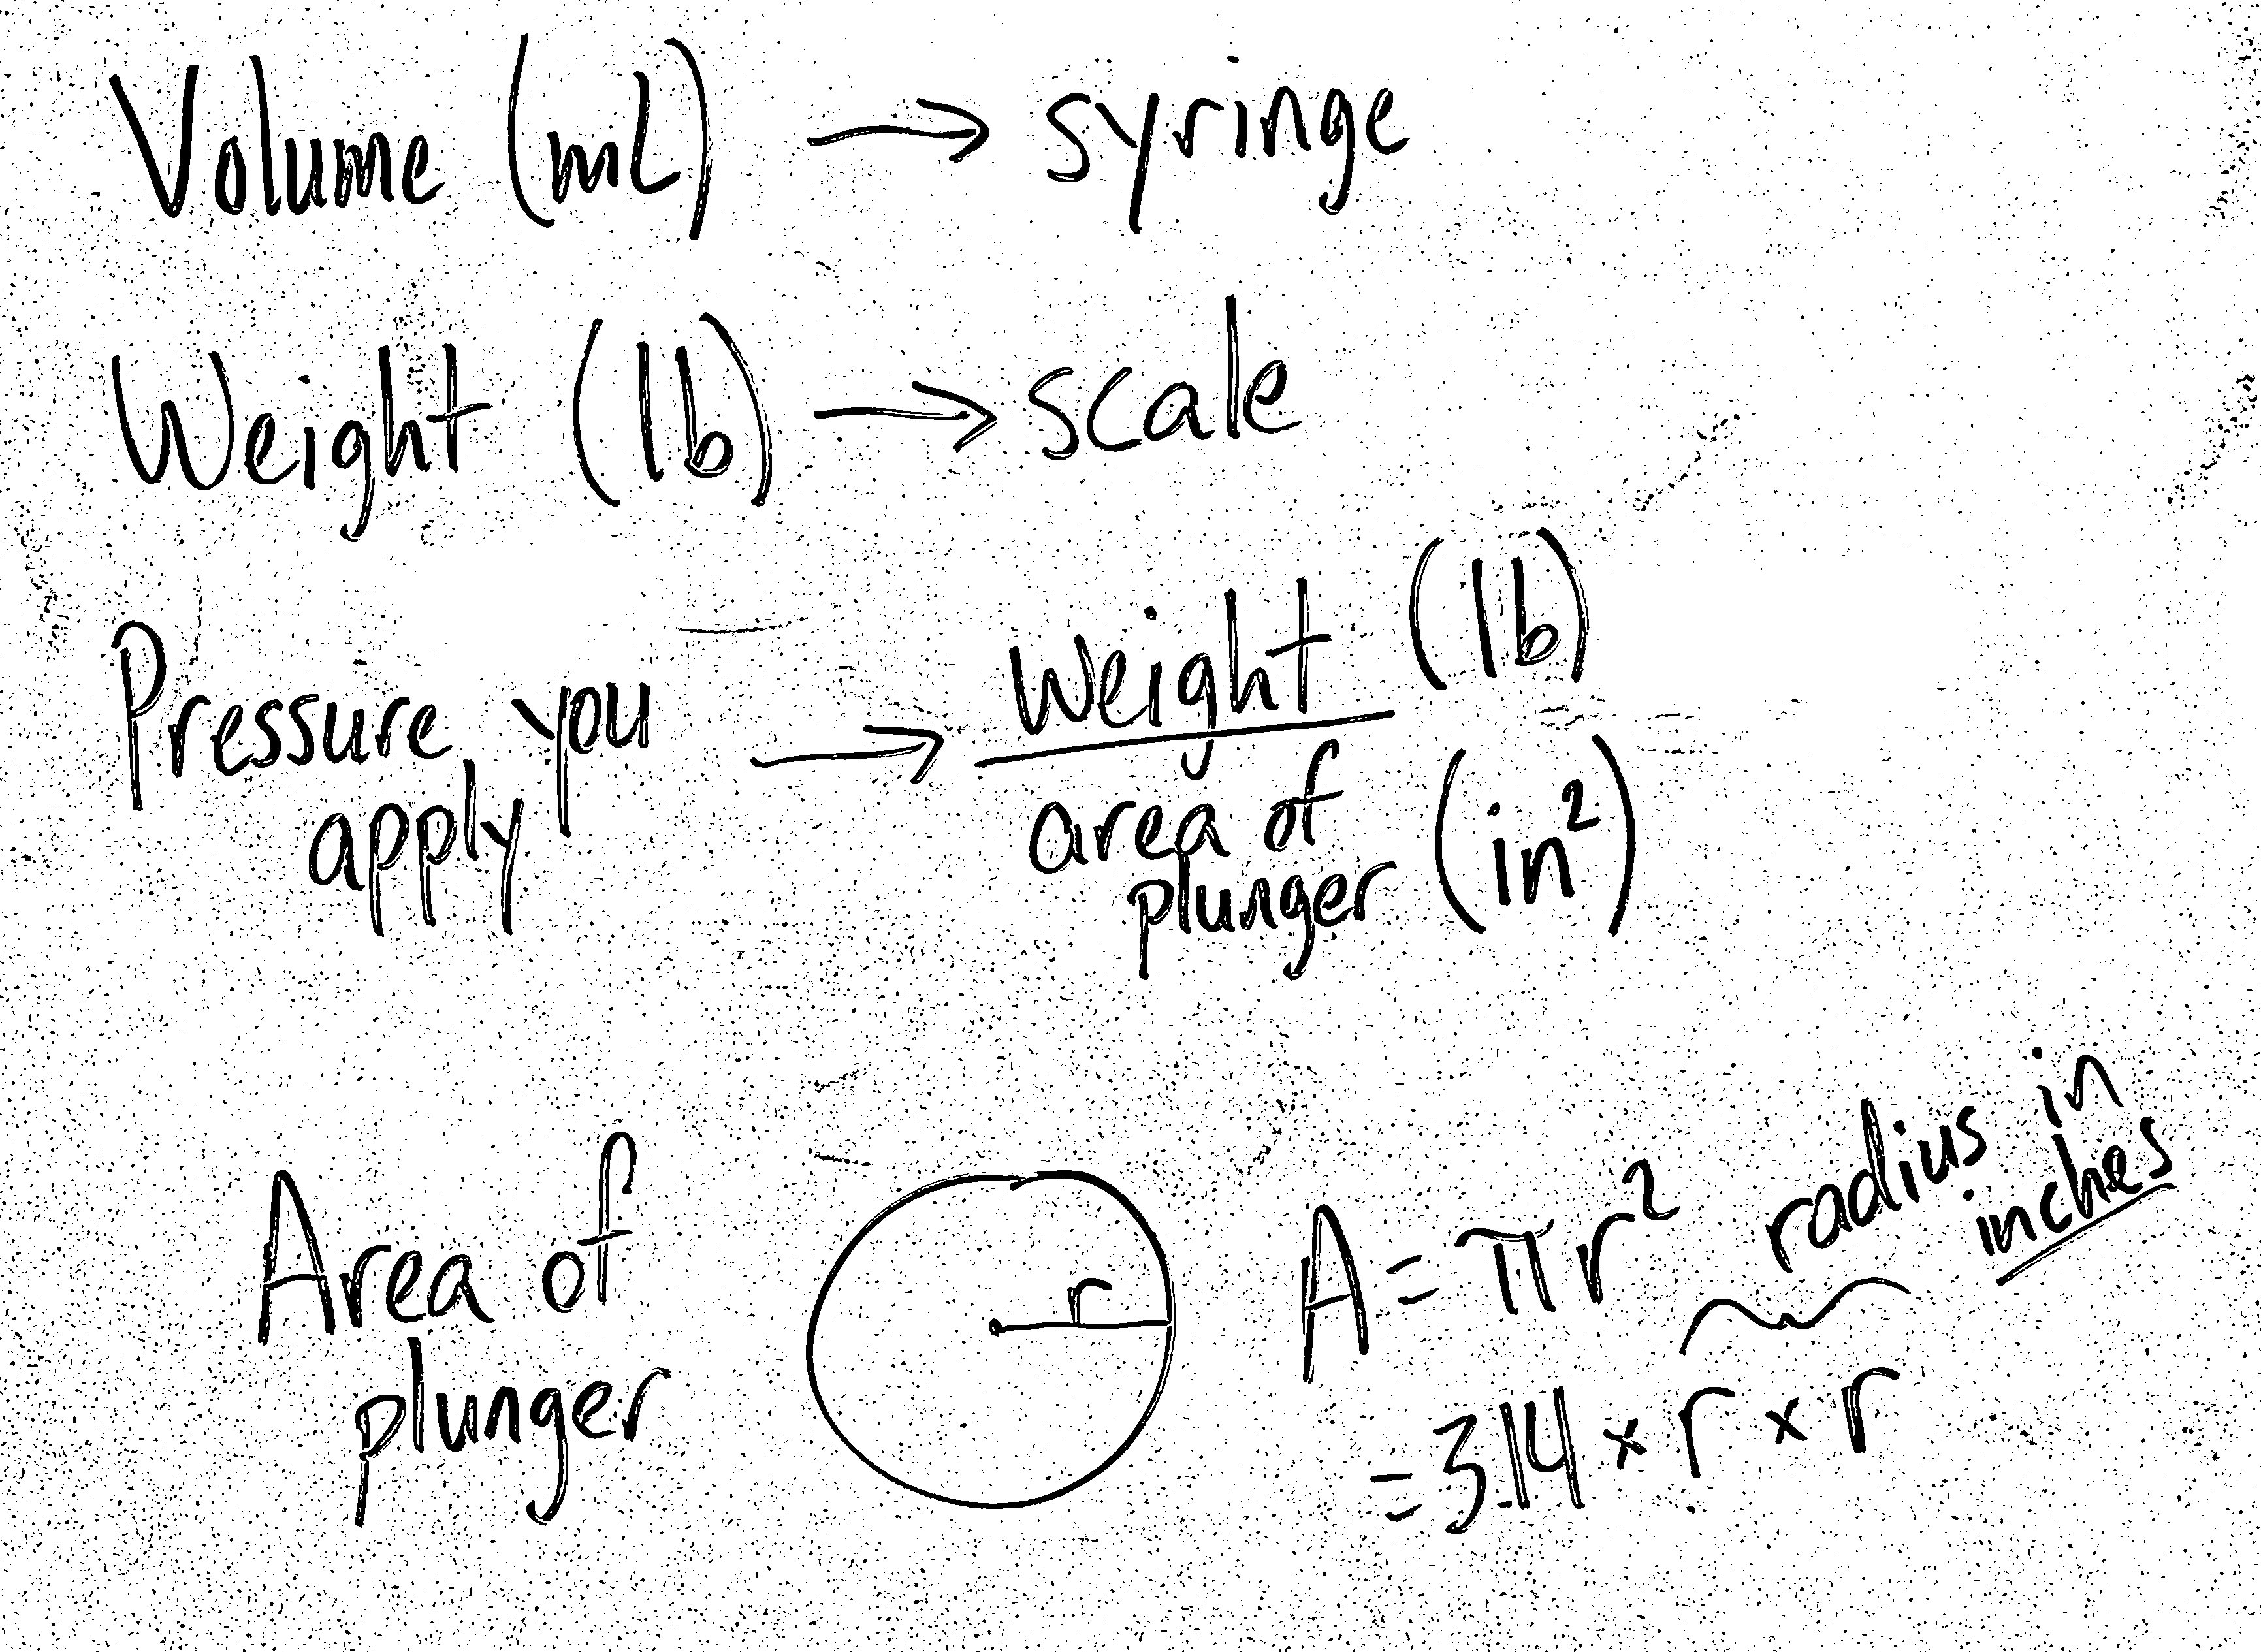 Volume (mL) → syringe
Weight (lb) → scale
Pressure you apply → weight (lb) / area of plunger (in²)
Area of plunger
r
A = πr² radius in inches
= 3.14 × r × r